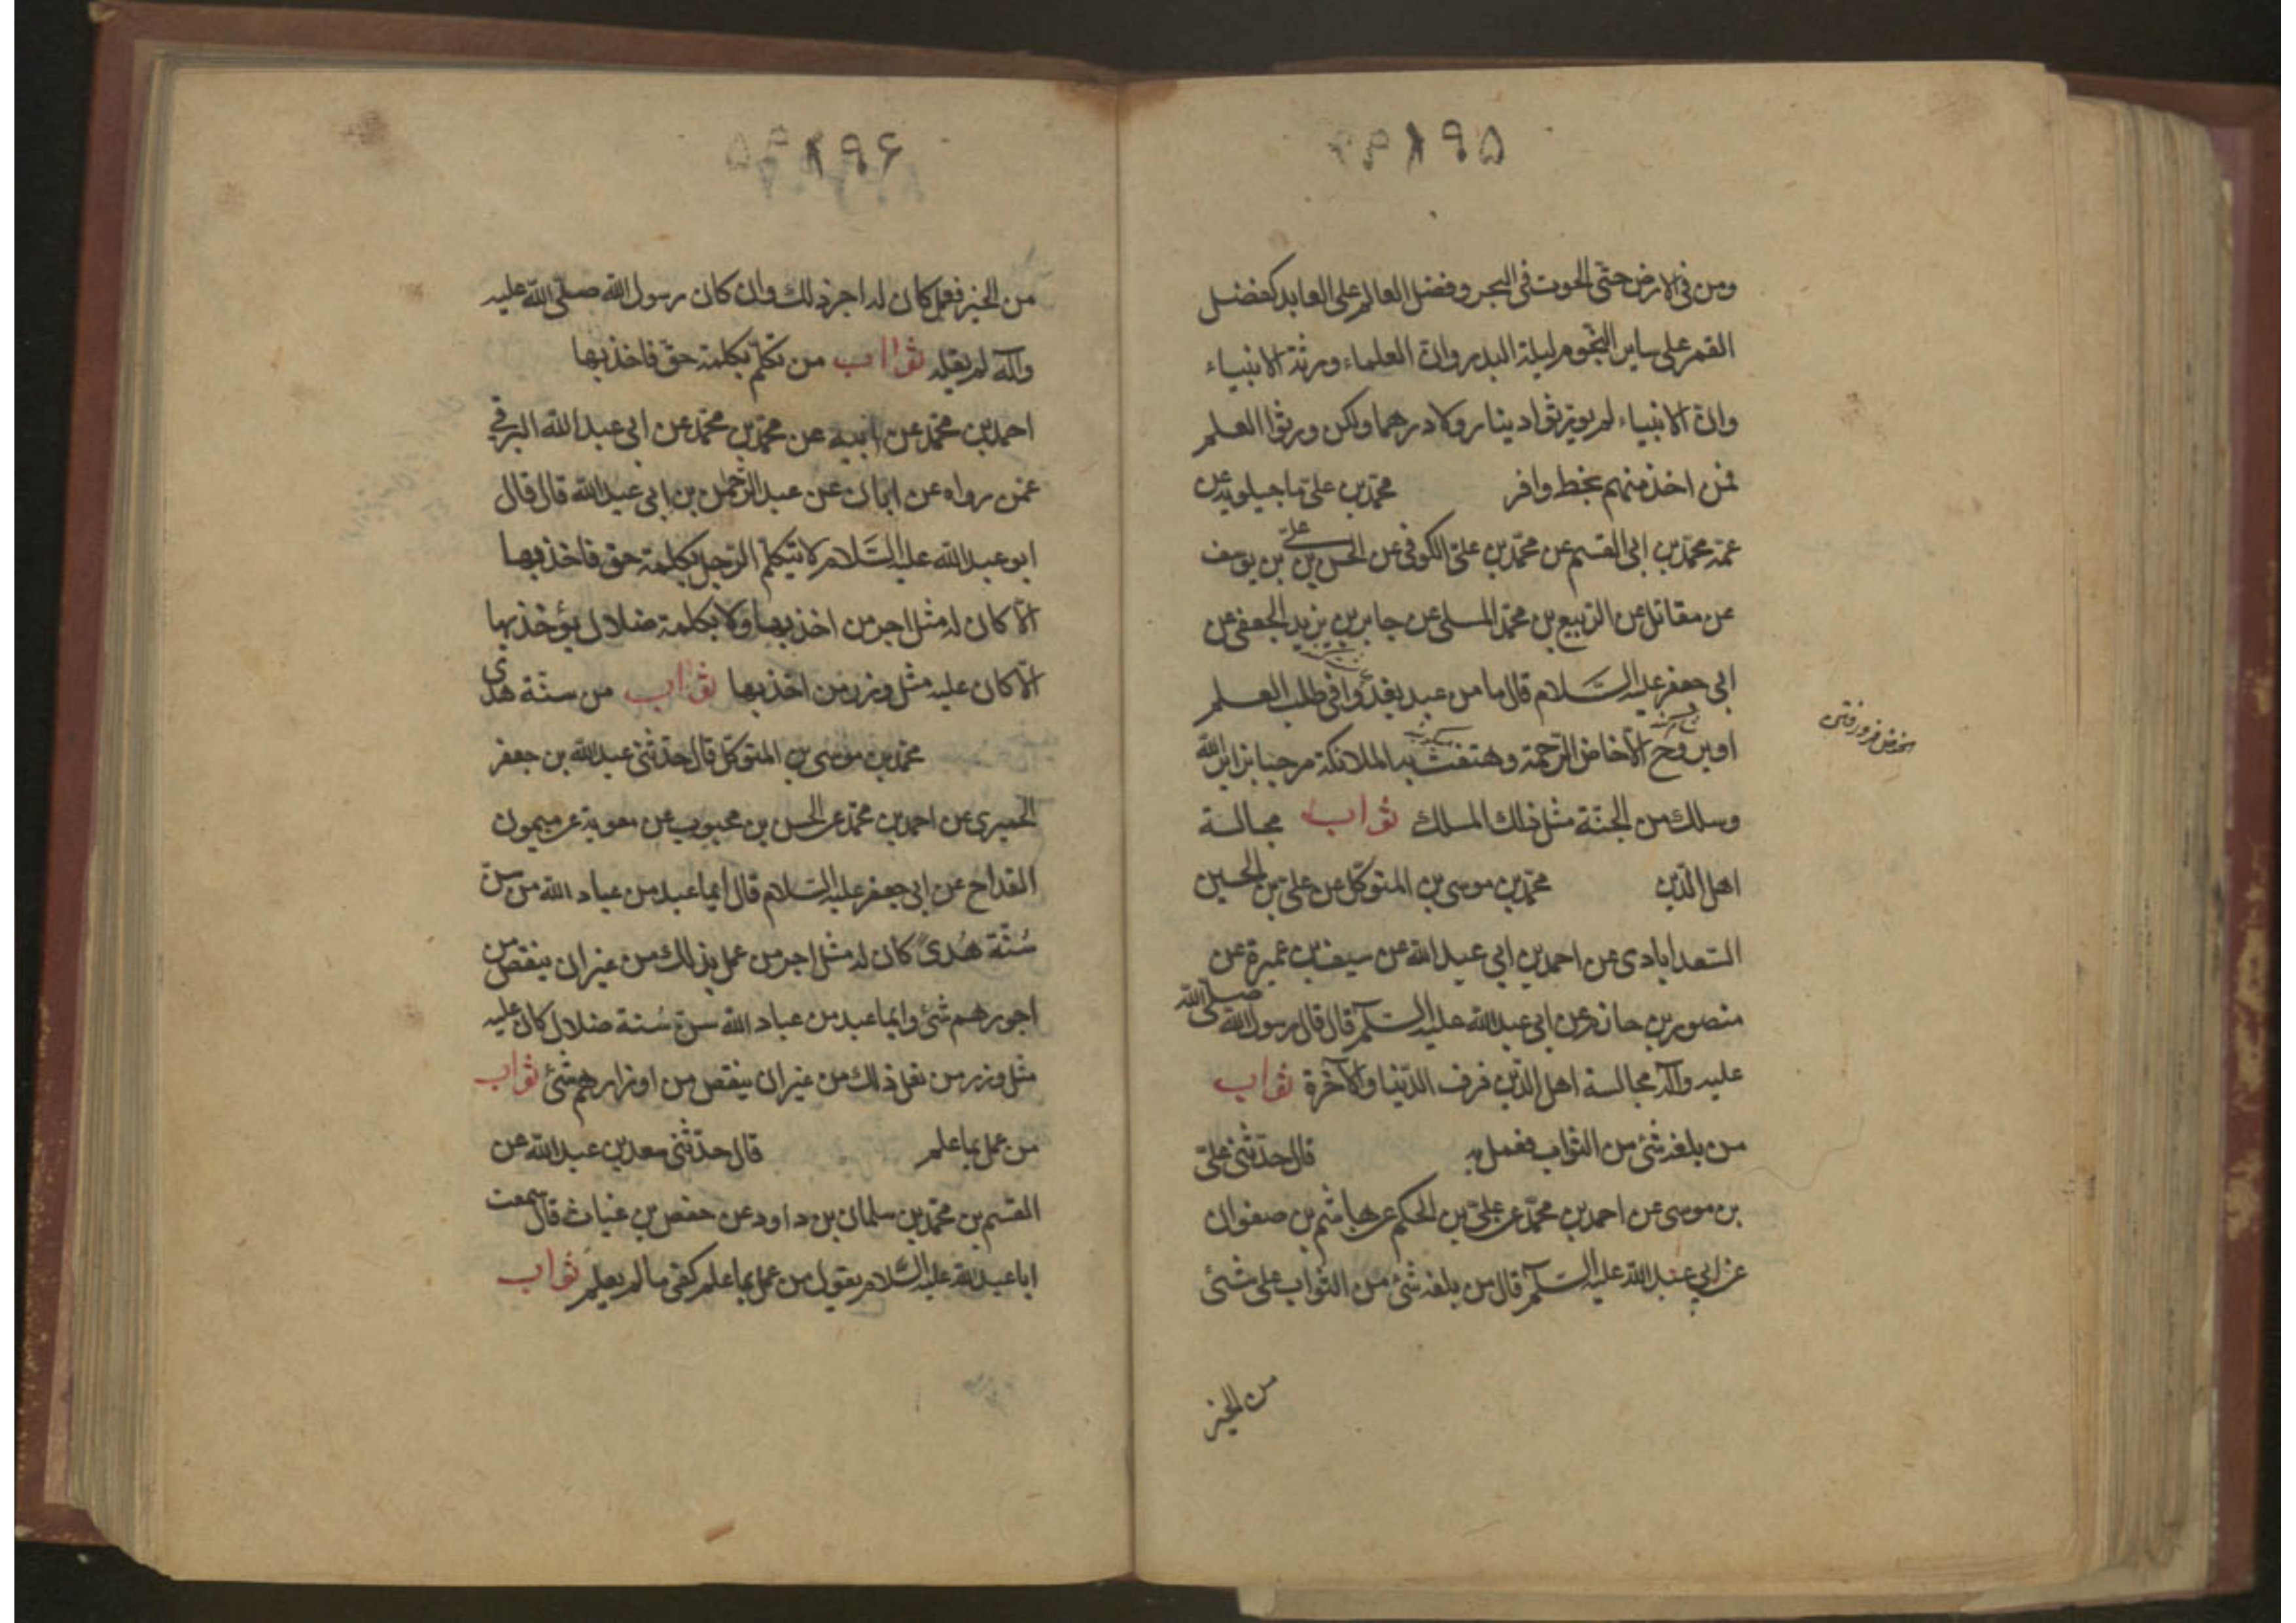 ۹۵
ومن في الارض حتى الحوت في البحر وفضل العالم على العابد كفضل
القمر على ساير النجوم ليلة البدر وان العلماء ورثة الانبياء
وان الانبياء لم يورثوا دينار ولا درهما ولكن ورثوا العلم
فمن اخذ منهم بحظ وافر محمد بن علي ماجيلويه عن
عمه محمد بن ابي القسم عن محمد بن علي الكوفي عن الحسن بن علي بن يوسف
عن مقاتل عن الربيع بن محمد المسلي عن جابر بن يزيد الجعفي عن
ابي جعفر عليه السلام قال ما من عبد يغدوا في طلب العلم
او يروح الا خاض الرحمة وهتفت به الملائكة مرحبا بزاير الله
وسلك من الجنة مثل ذلك المسلك ثواب مجالسة
اهل الدين محمد بن موسى بن المتوكل عن علي بن الحسين
السعدابادي عن احمد بن ابي عبد الله عن سيف بن عميرة عن
منصور بن حازم عن ابي عبد الله عليه السلم قال قال رسول الله صلى الله
عليه وآله مجالسة اهل الدين شرف الدنيا والآخرة ثواب
من بلغه شئ من الثواب فعمل به قال حدثني علي
بن موسى عن احمد بن محمد عن علي بن الحكم عن هاشم بن صفوان
عن ابي عبد الله عليه السلم قال من بلغه شئ من الثواب على شئ
من الخير
۹۶
من الخير فعمل كان له اجر ذلك وان كان رسول الله صلى الله عليه
وآله لم يقله ثواب من تكلم بكلمة حق فاخذ بها
احمد بن محمد عن ابيه عن محمد بن محمد عن ابي عبد الله البرقي
عمن رواه عن ابان عن عبد الرحمن بن ابي عبد الله قال قال
ابو عبد الله عليه السلام لا يتكلم الرجل بكلمة حق فاخذ بها
الا كان له مثل اجر من اخذ بها ولا بكلمة ضلال يؤخذ بها
الا كان عليه مثل وزر من اخذ بها ثواب من سنة هدى
محمد بن موسى بن المتوكل قال حدثني عبد الله بن جعفر
الحميري عن احمد بن محمد عن الحسن بن محبوب عن معوية عن ميمون
القداح عن ابي جعفر عليه السلام قال ايما عبد من عباد الله من سن
سُنّة هُدىً كان له مثل اجر من عمل بذلك من غير ان ينقص من
اجورهم شئ وايما عبد من عباد الله سن سُنة ضلال كان عليه
مثل وزر من فعل ذلك من غير ان ينقص من اوزارهم شئ ثواب
من عمل بما علم قال حدثني سعد بن عبد الله عن
القسم بن محمد بن سلمان بن داود عن حفص بن غياث قال سمعت
ابا عبد الله عليه السلام يقول من عمل بما علم كفى ما لم يعلم ثواب